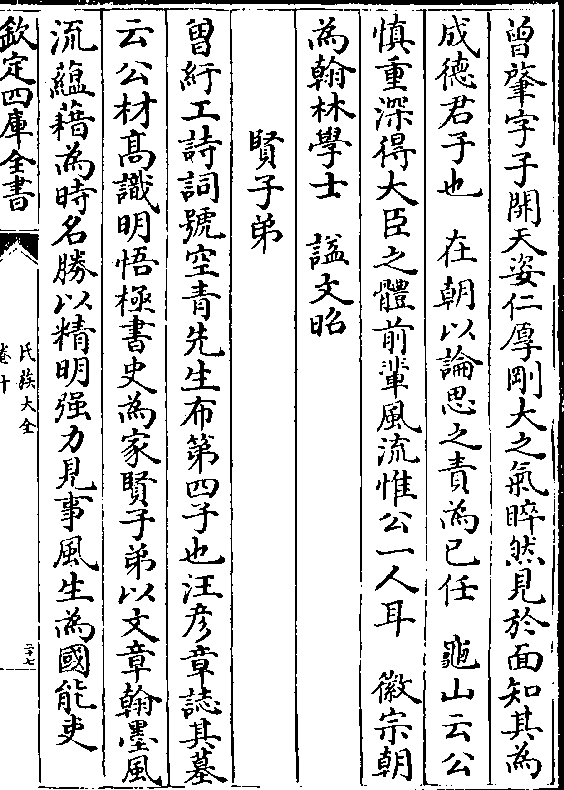 曾肇字子開天姿仁厚剛大之氣睟然見於面知其為
成德君子也　在朝以論思之責為己任　龜山云公
慎重深得大臣之體前輩風流惟公一人耳　徽宗朝
為翰林學士　謚文昭
賢子弟
曾紆工詩詞號空青先生布第四子也汪彦章誌其墓
云公材髙識明悟極書史為家賢子弟以文章翰墨風
流藴藉為時名勝以精明强力見事風生為國能吏
欽定四庫全書
氏族大全
卷十
二十七